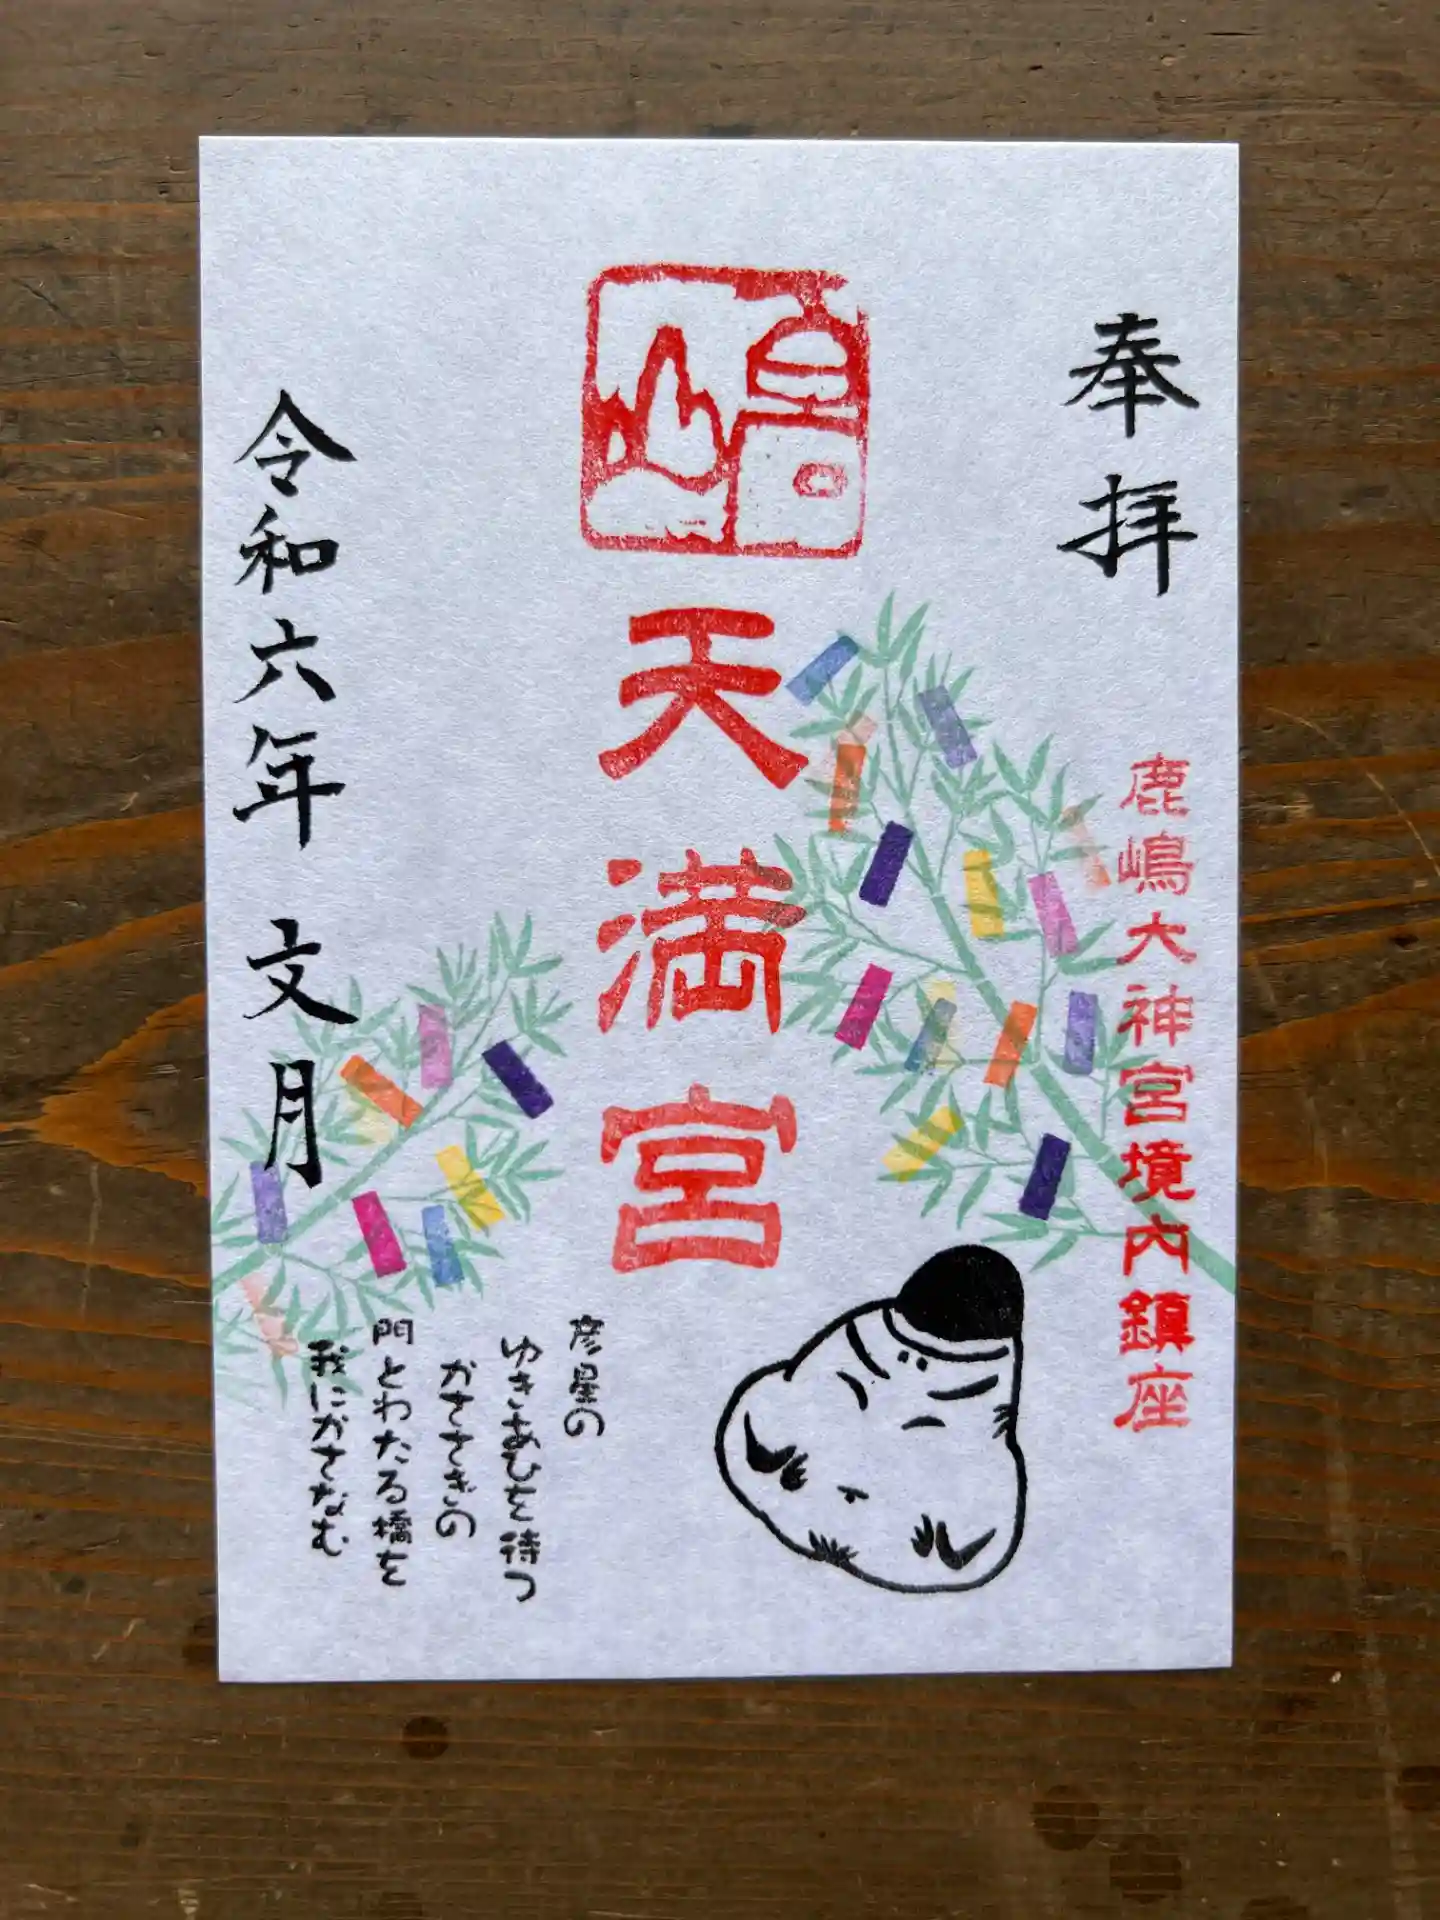 奉拝
鹿嶋大神宮境内鎮座
天満宮
彦星の
ゆきあひを待つ
かささぎの
門とわたる橋を
我にかさなむ
令和六年 文月